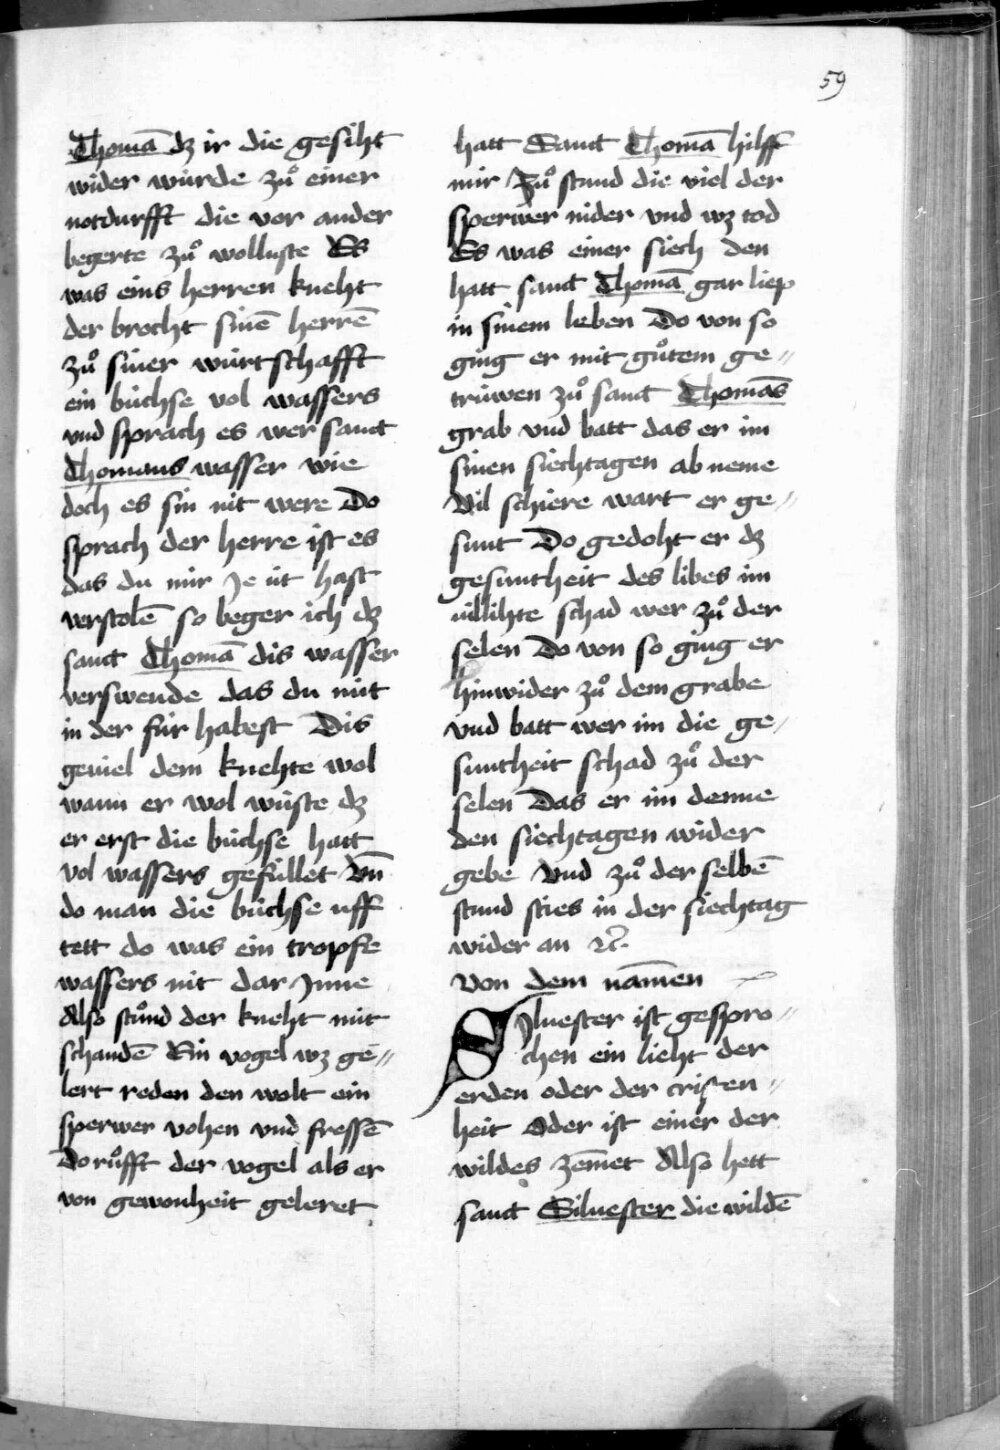 59
Thomā dz ir die gesiht
wider würde zuͦ einer
notdurfft die vor ander
begerte zuͦ wolluste Es
was eins herren kneht
der brocht sinē herrē
zuͦ siner würtschafft
ein büchse vol wassers
vnd sprach es wer sanct
Thomans wasser wie
doch es sin nit were Do
sprach der herre ist es
das du mir Je üt hast
verstolē so beger ich dz
sanct Thomā dis wasser
verswende das du nüt
in der für habest Dis
geuiel dem knehte wol
wann er wol wüste dz
er erst die büchse hatt
vol wassers gefüllet vn̄
do man die büchse uff
tett do was ein tropfe
wassers nit dar Jnne
Also stuͦnd der kneht mit
schandē Ein vogel wz ge⸗
lert reden den wolt ein
sperwer vohen vnd fressē
Do ruͦfft der vogel als er
von gewonheit geleret
hatt Sanct Thomā hilff
mir / Zuͦ stund die viel der
sperwer nider vnd wz tod
Es was einer siech den
hatt sanct Thomā gar liep
in sinem leben Do von so
ging er mit guͦtem ge⸗
trüwen zuͦ sanct Thomās
grab vnd batt das er im
sinen siechtagen ab neme
Vil schiere wart er ge⸗
sunt Do gedoht er dz
gesuntheit des libes im
villihte schad wer zuͦ der
selen Do von so ging er
hinwider zuͦ dem grabe
vnd batt wer im die ge⸗
suntheit schad zuͦ der
selen Das er im denne
den siechtagen wider
gebe Vnd zuͦ der selbē
stund sties in der siechtag
wider an ⁊c̄
Von dem nāmen
SJluester ist gespro⸗
chen ein lieht der
erden oder der cristen⸗
heit Oder ist einer der
wildes zēmet Also hett
sanct Siluester die wildē